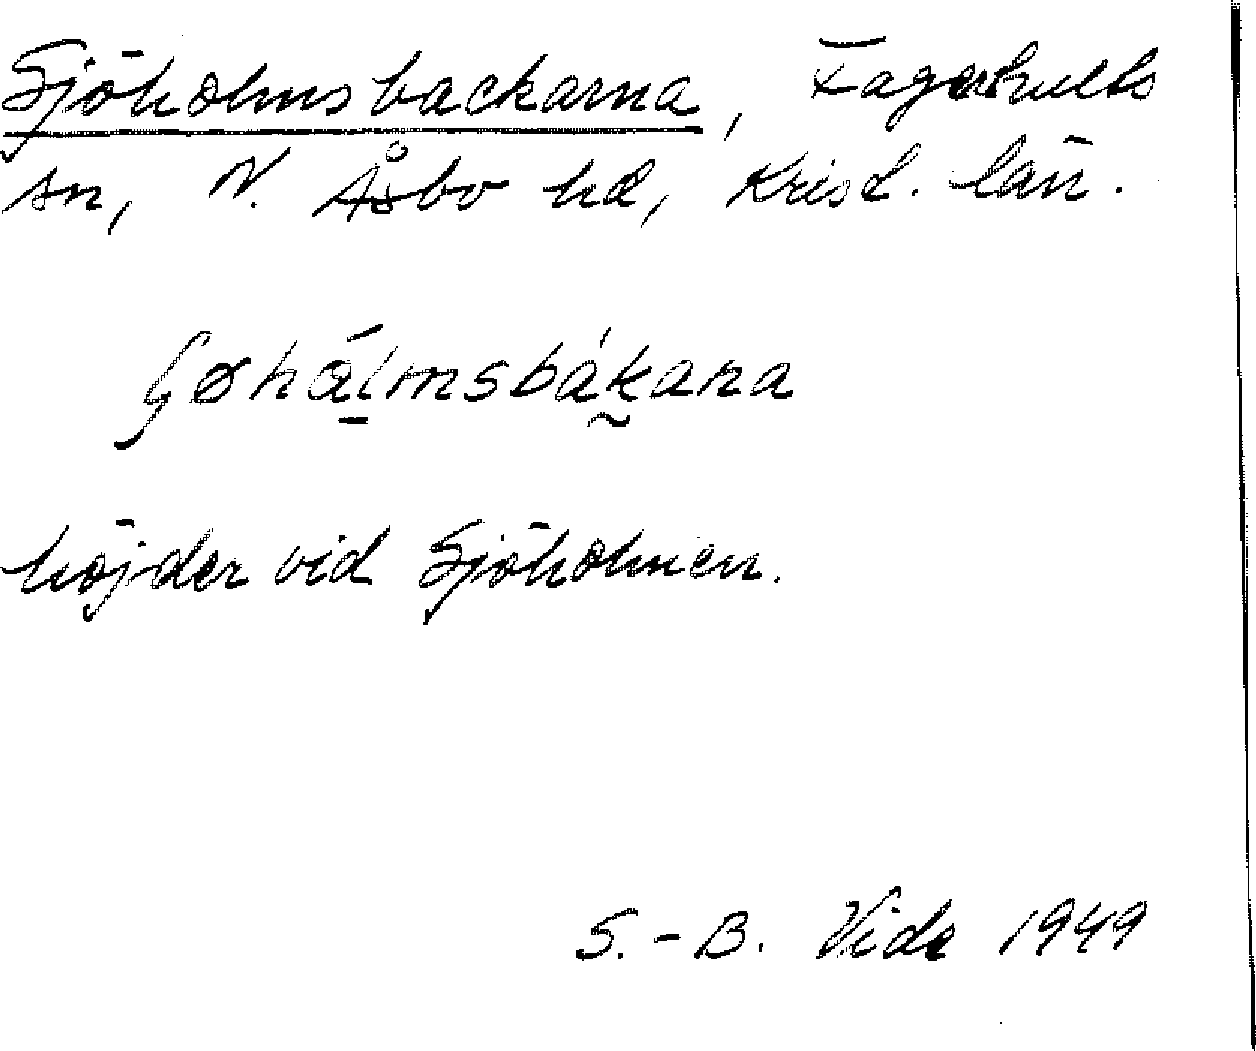 Sjöholmsbackarna, Fagerhults
sn, N. Åsbo hd, Krist. län.
höjder vid Sjöholmen.
S.-B. Vide 1949